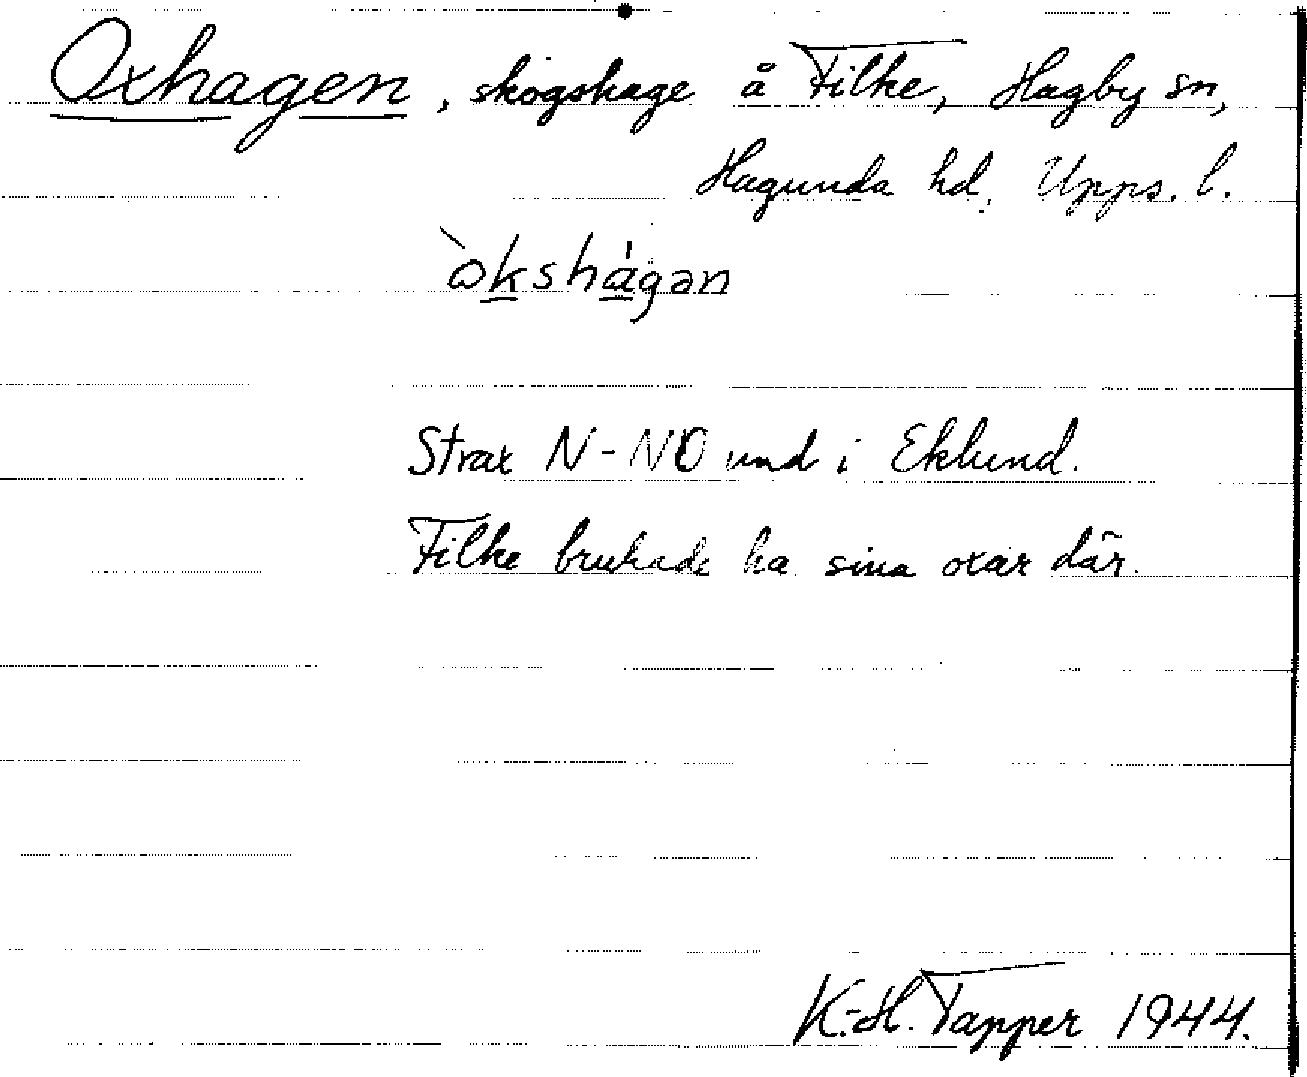 Oxhagen, skogshage å Filke, Hagby sn,
Hagunda hd, Upps. l.
òkshágən
Strax N-NO und i Eklund.
Filke brukade ha sina oxar där.
K.-H. Tapper 1944.